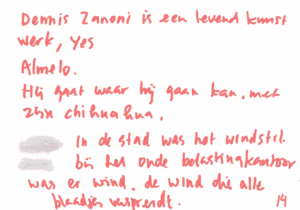 Dennis Zanoni is een levend kunst
werk, yes
Almelo.
Hij gaat waar hij gaan kan, met
zijn chihuahua.
In de stad was het windstil.
bij het oude belastingkantoor
was er wind. de wind die alle
blaadjes verspreidt. 14